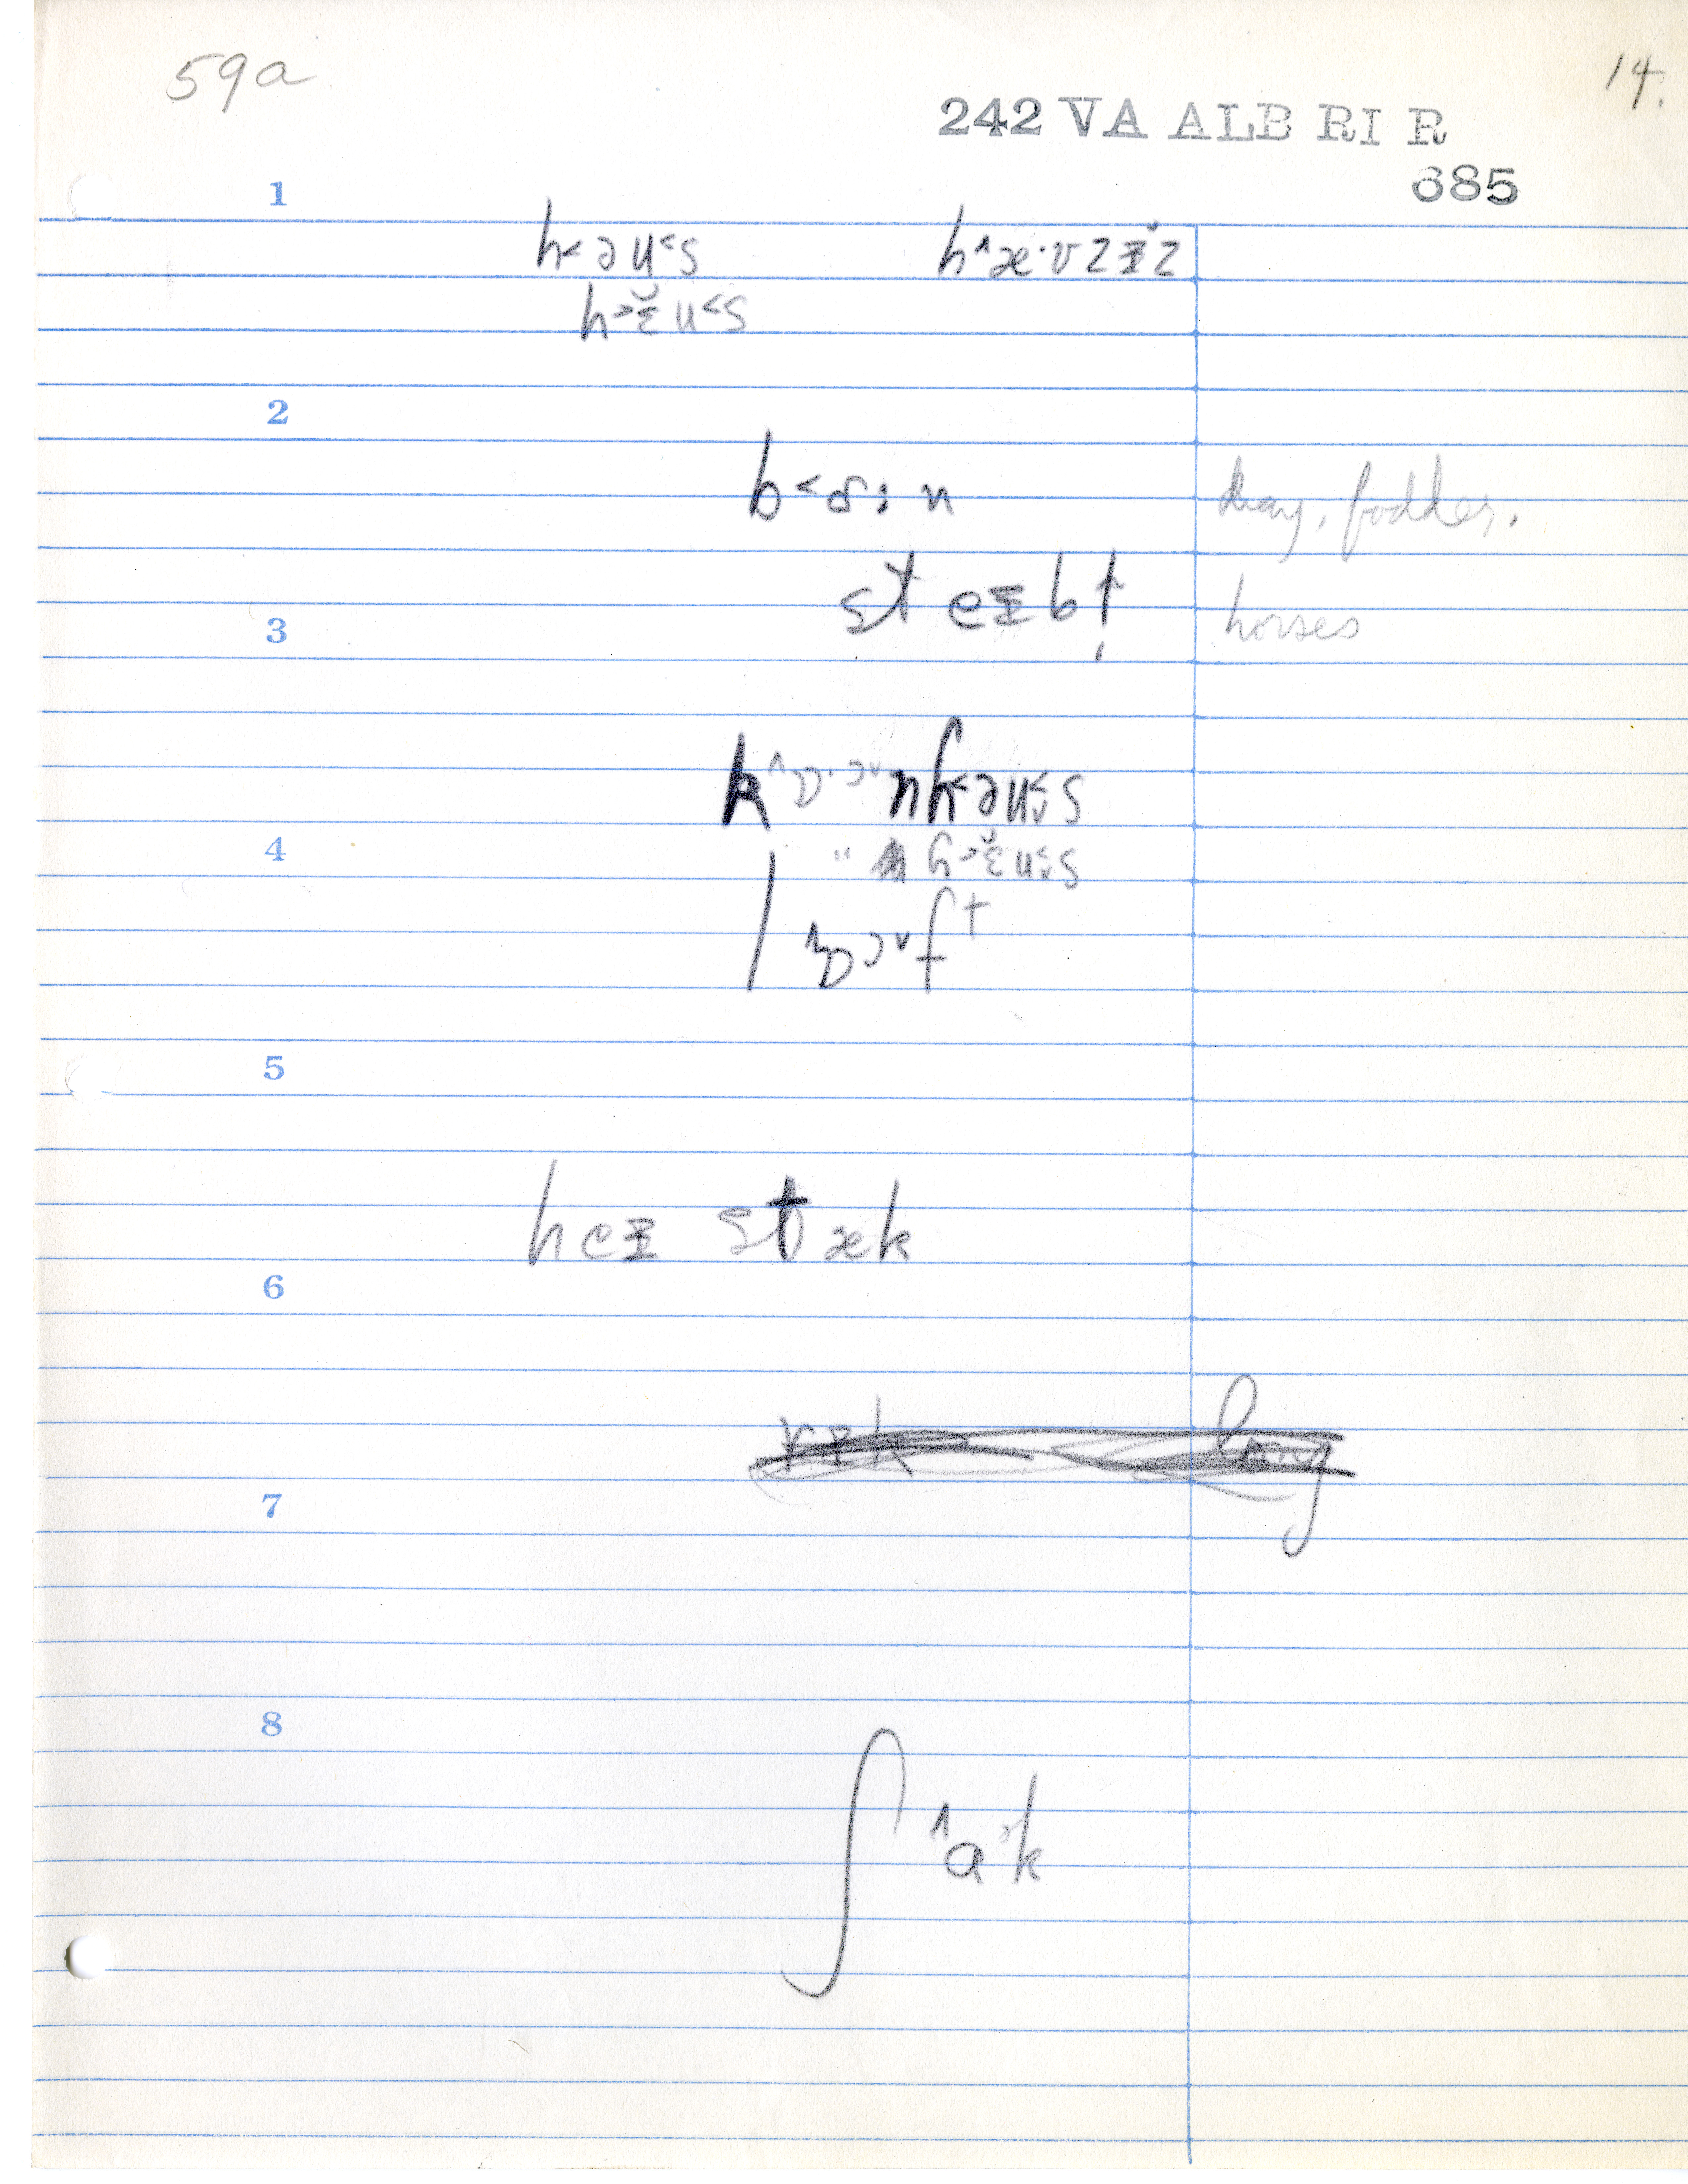 59a
14.
242 VA ALB RI R
685
1
h˂əu˂s h˄æ·ʊzɪ̆z
h˃ɛ̆u˂s
2
b˂ɑ:n hay, fodder.
steɪbḷ
3
horses
k˄ɒ·ɔ˅nh˂əu˂s
4
" h˃ɛ̆u˂s
l˄ɒɔ˅ft
5
heɪ stæk
6
long
7
8
ʃ˄ak